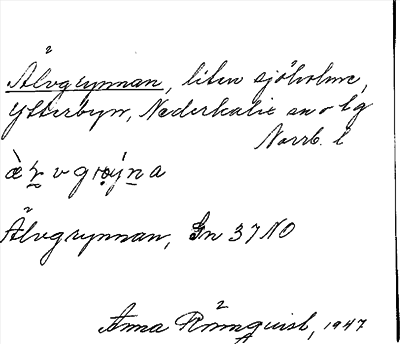 Älvgrynnan, liten sjöholme,
Ytterbyn, Nederkalix sn o lg
Norrb. l
Älvgrynnan, Gn 37 NO
Anna Rönnquist, 1947